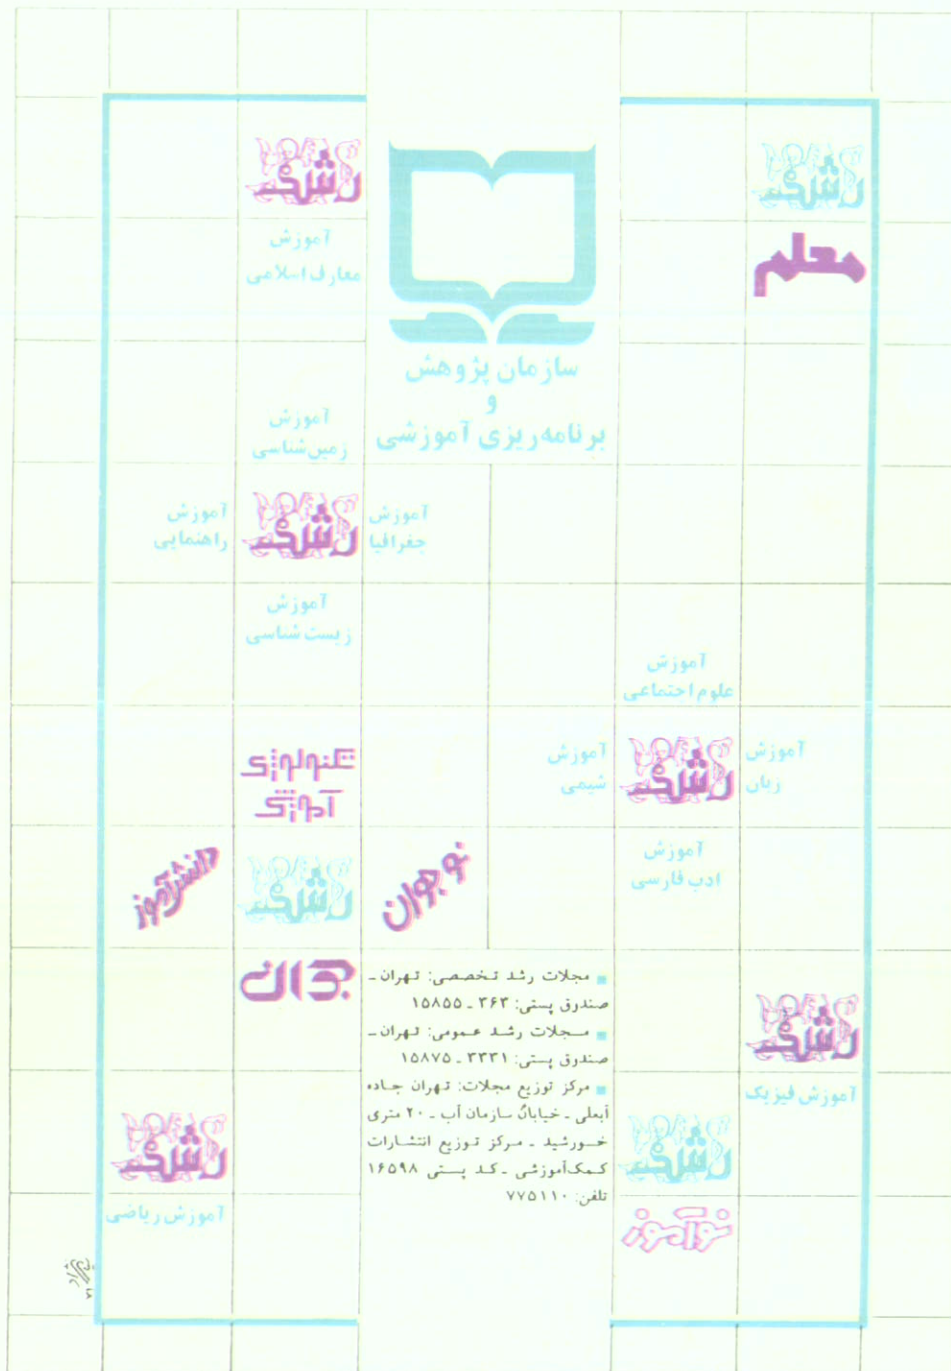 رشد
معلم
رشد
آموزش
معارف اسلامی
سازمان پژوهش
و
برنامه‌ریزی آموزشی
آموزش
زمین‌شناسی
آموزش
جغرافیا
رشد
آموزش
راهنمایی
آموزش
زیست شناسی
آموزش
علوم اجتماعی
آموزش
زبان
رشد
آموزش
شیمی
آموزش
ادب فارسی
تکنولوژی
آموزشی
نوجوان
رشد
دانش‌آموز
جوان
مجلات رشد تخصصی: تهران ـ
صندوق پستی: ۳۶۳ ـ ۱۵۸۵۵
مـجلات رشـد عـمومی: تـهران ـ
صندوق پـستی: ۳۳۳۱ ـ ۱۵۸۷۵
مرکز توزیع مجلات: تهران جـاده
آبعلی ـ خیابان سازمان آب ـ ۲۰ متری
خـورشید ـ مـرکز تـوزیع انتشـارات
کـمک‌آموزشی ـ کـد پـستی ۱۶۵۹۸
تلفن: ۷۷۵۱۱۰
رشد
آموزش فیزیک
رشد
نوآموز
رشد
آموزش ریاضی